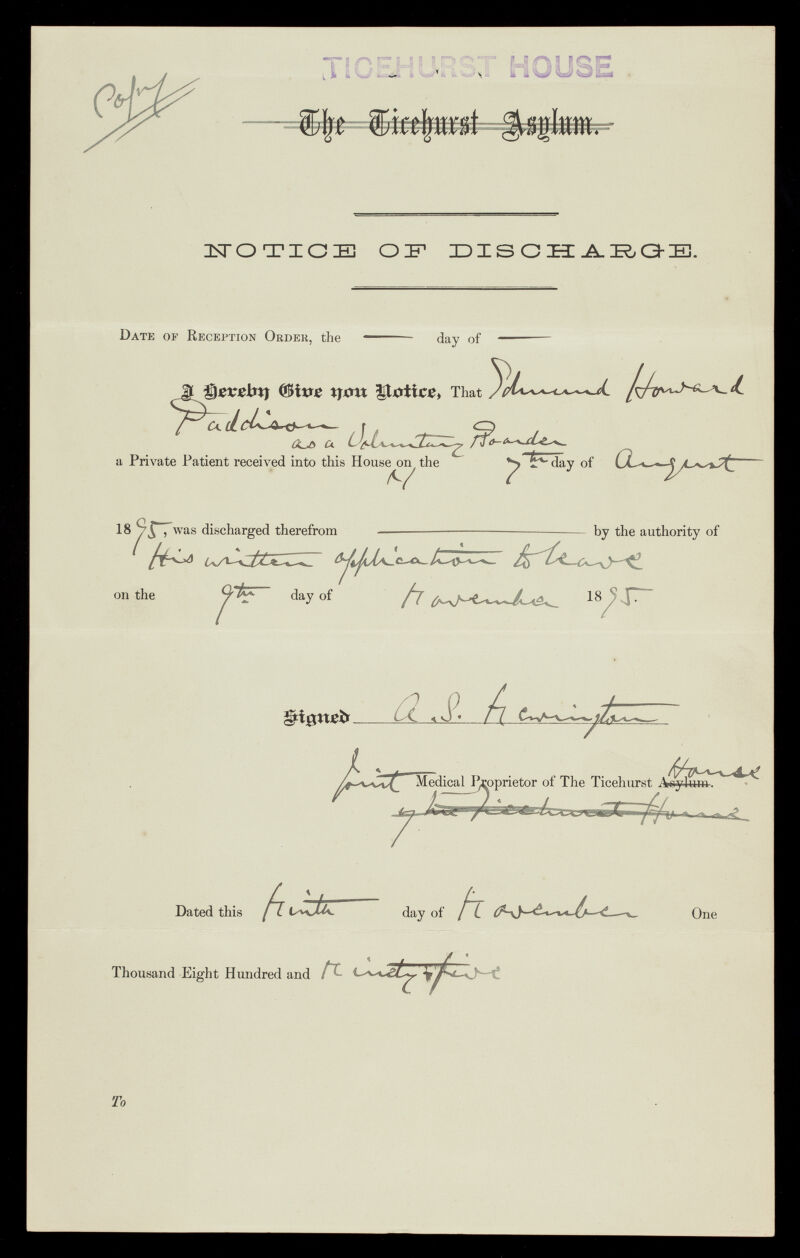 Copy
TICEHURST HOUSE
The Ticehurst Asylum.
NOTICE OF DISCHARGE.
DATE OF RECEPTION ORDER, the —— day of ——
I Hereby Give you Notice, THAT Edmund Howard
Paddison
as a Voluntary Boarder
a Private Patient received into this House on the 7th day of August
1895, was discharged therefrom —— by the authority of
His written application to leave
on the 9th day of November 1895.
Signed A. S. Newington
Joint Medical Proprietor of The Ticehurst Asylum. House
of the Ticehurst House
Dated this Ninth day of November One
Thousand Eight Hundred and Ninety five
To